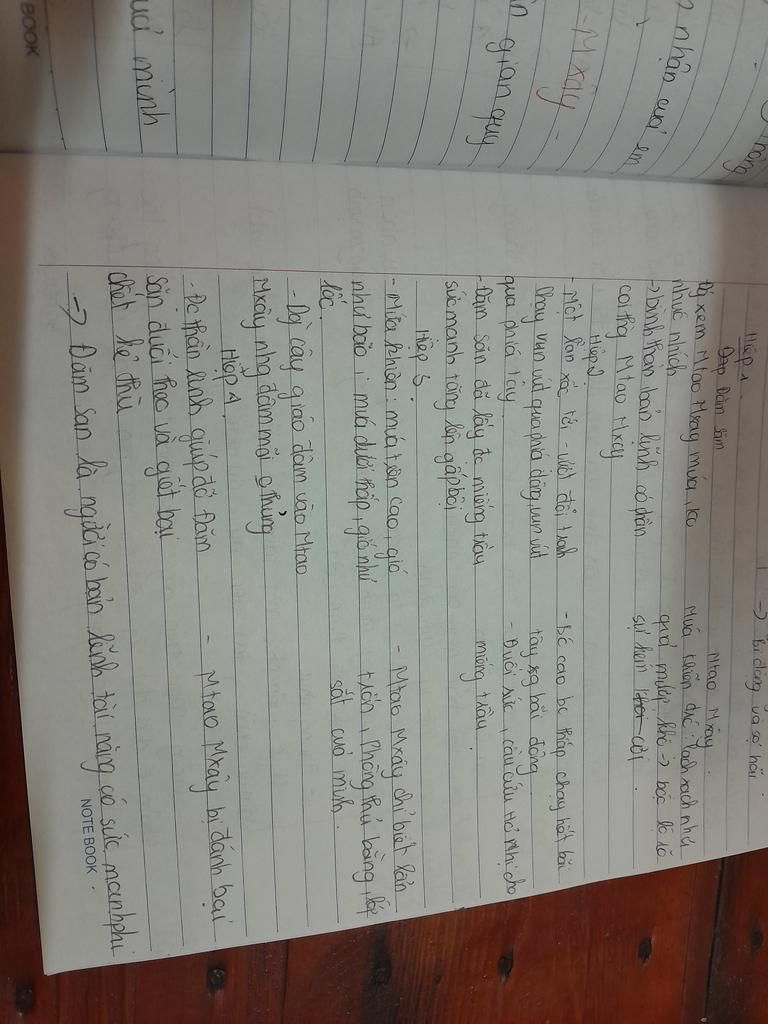 BOOK
nhân của em
-Mxây-
gian quy
mình
-> Bị động và sợ hãi.
Hiệp 1
Đăm Săm
Mtao Mxây.
xem Mtao Mxây múa, ko
nhúc nhích
-> bình thản bản lĩnh có phần
coi thg Mtao Mxây
Múa khiên trc: lạch xạch như
quả mướp khô -> bộc lộ rõ
sự kém cỏi.
Hiệp 2
- Một lần xốc tới, - vượt đồi tranh
chạy vun vút qua phía đông, vun vút
qua phía tây
- Đăm săn đã lấy đc miếng trầu
sức mạnh tăng lên gấp bội
- Bc cao bc thấp chạy hết bãi
tây sg bãi đông
- Đuối sức, cầu cứu Hơ Nhị cho
miếng trầu.
Hiệp 3.
- Múa khiên: múa trên cao, gió
như bão; múa dưới thấp, gió như
lốc.
- Dg cây giáo đâm vào Mtao
Mxây nhg đâm mãi o thủng
- Mtao Mxây chỉ biết lẩn
trốn, Phòng thủ bằng lớp
sắt của mình.
Hiệp 4
- Đc thần linh giúp đỡ Đăm
săn đuổi theo và giết bại
chết kẻ thù
- Mtao Mxây bị đánh bại
-> Đăm san là người có bản lĩnh tài năng có sức mạnh phi
NOTEBOOK.